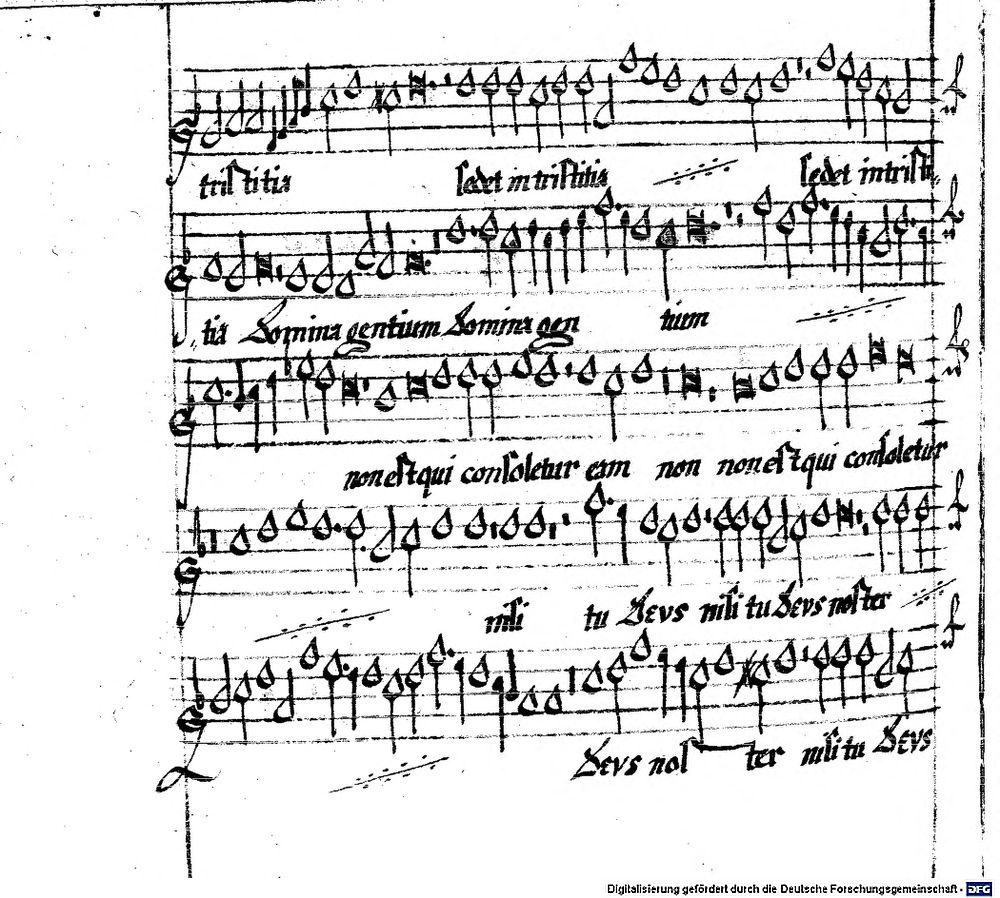 tristitia sedet in tristitia sedet in tristi
tia Domina gentium Domina gen tium
non est qui consoletur eam non non est qui consoletur
nisi tu Deus nisi tu Deus noster
Deus nos ter nisi tu Deus
Digitalisierung gefördert durch die Deutsche Forschungsgemeinschaft - DFG